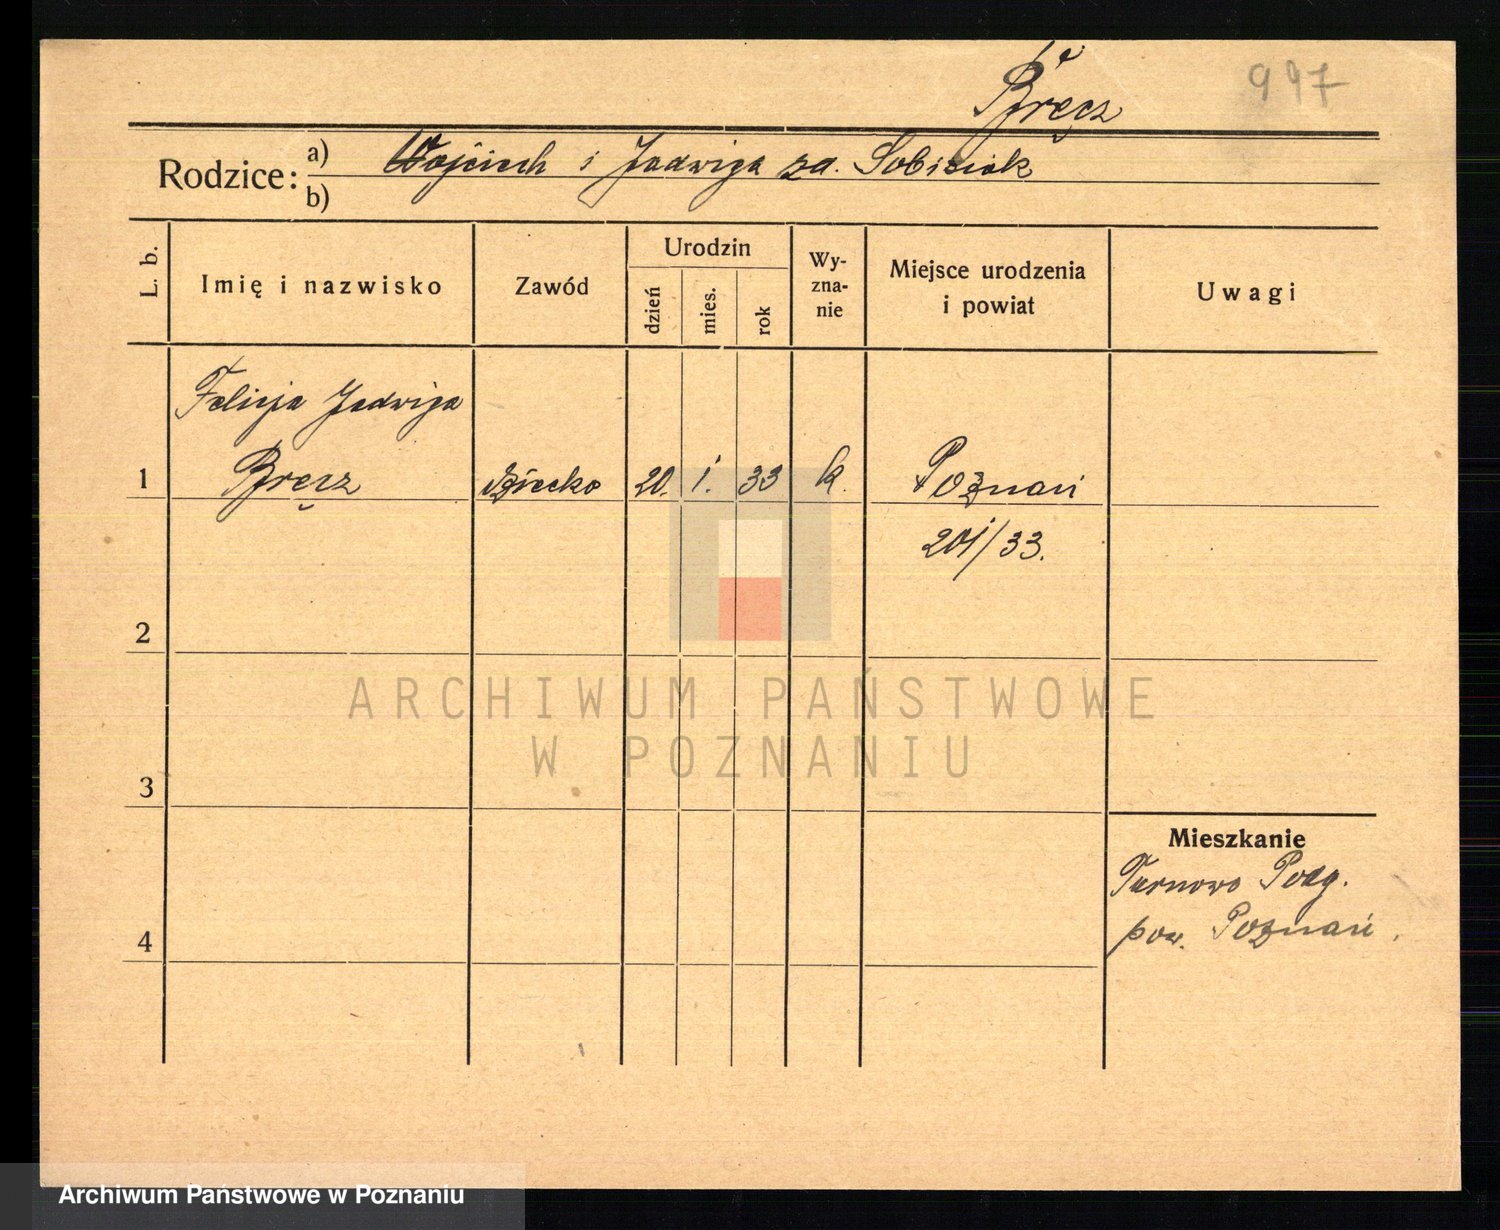 Bręcz
997
Rodzice: a) Wojciech i Jadwiga za. Sobisiak
b)
L. b.
Imię i nazwisko
Zawód
Urodzin
dzień
mies.
rok
Wy-
zna-
nie
Miejsce urodzenia
i powiat
Uwagi
Felicja Jadwiga
1 Bręcz dziecko 20. 1. 33 k. Poznań
201/33.
2
3
4
Mieszkanie
Tarnowo Podg.
pow. Poznań.
ARCHIWUM PAŃSTWOWE
W POZNANIU
Archiwum Państwowe w Poznaniu